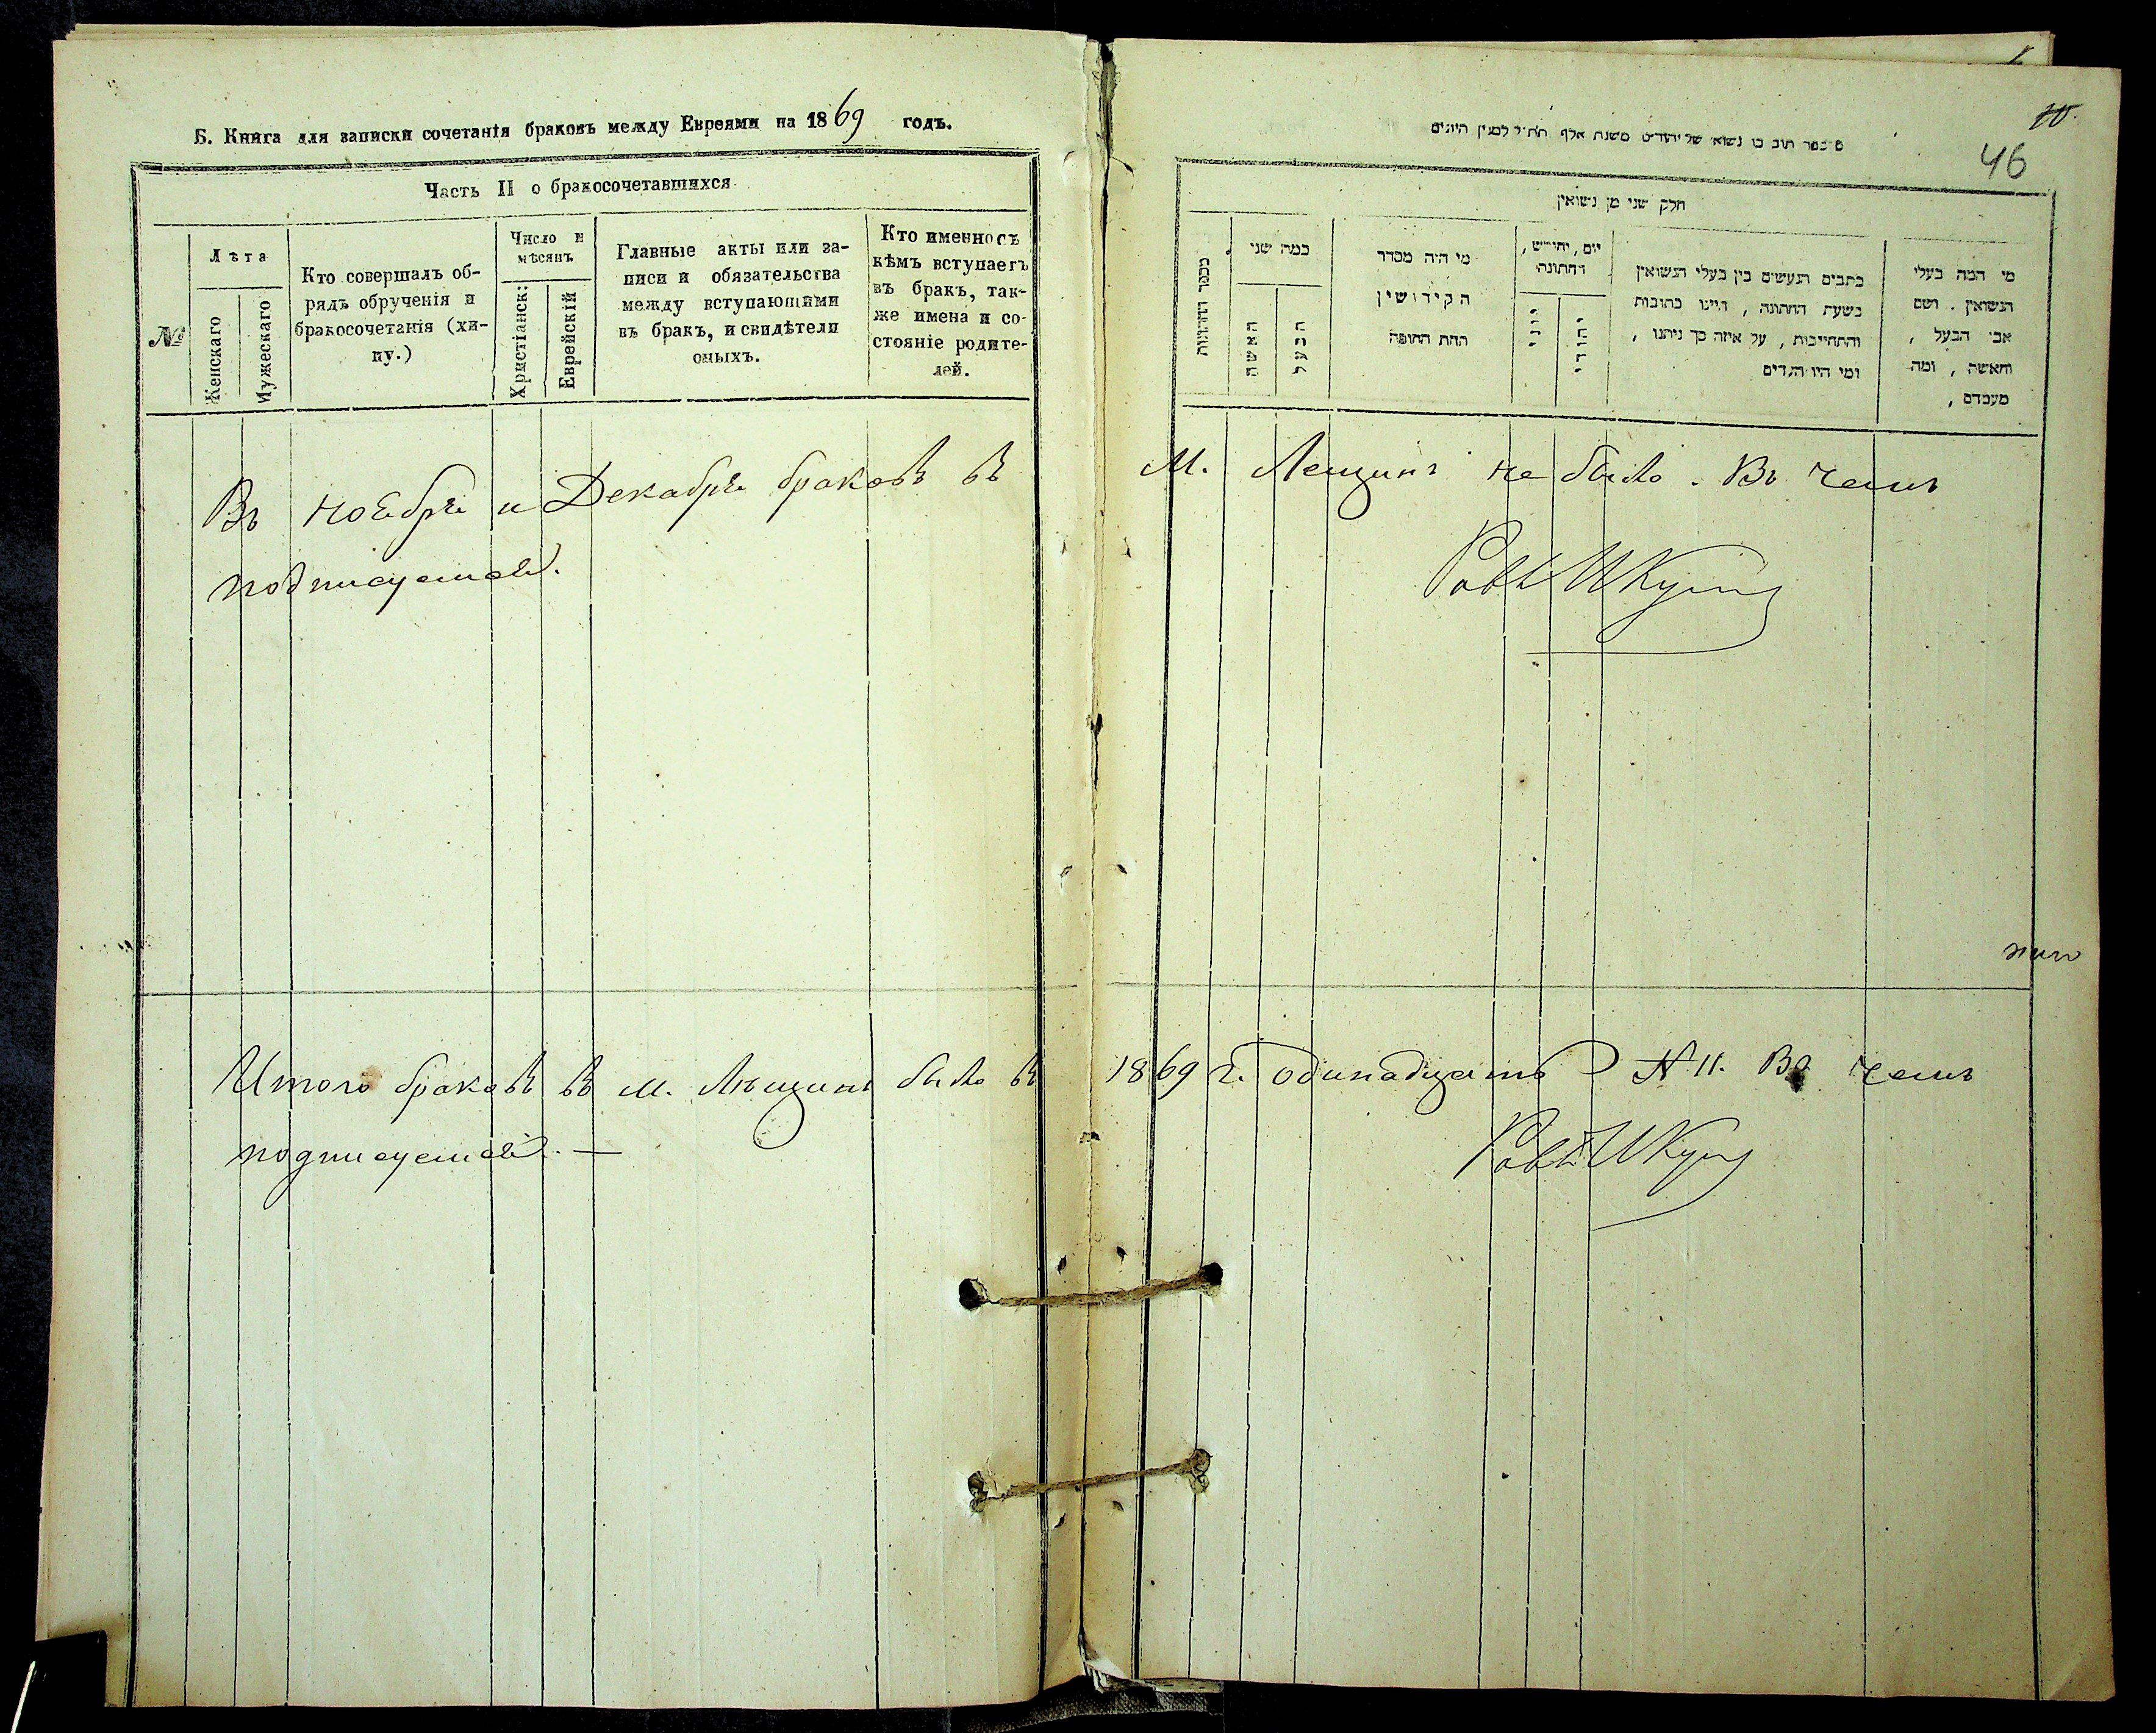 Б. Книга для записки сочетанія браковъ между Евреями на 1869 годъ.
Часть II о бракосочетавшихся
№
Лѣта
Женскаго
Мужескаго
Кто совершалъ об-
рядъ обрученія и
бракосочетанія (хи-
пу.)
Число и
мѣсяцъ
Христіанск:
Еврейскій
Главные акты или за-
писи и обязательства
между вступающими
въ бракъ, и свидѣтели
оныхъ.
Кто именно съ
кѣмъ вступаетъ
въ бракъ, так-
же имена и со-
стояніе родите-
лей.
46
חלק שני מן נשואין
כמה שני
האשה
הבעל
מי היה מסדר
הקידושין
תחת החופה
יהודי
כתבים הנעשים בין בעלי הנשואין
בשעת החתונה , היינו כתובות
והתחייבות , על איזה סך ניתנו ,
ומי היו העדים
מי המה בעלי
הנשואין . ושם
אבי הבעל ,
והאשה , ומה
מעמדם ,
Въ ноябрѣ и Декабрѣ браковъ въ М. Лещинѣ не было. Въ чемъ
подписуемся.
Итого браковъ въ м. Лѣщинѣ было въ 1869 г. одинадцать № 11. Въ чемъ
подписуемся. —